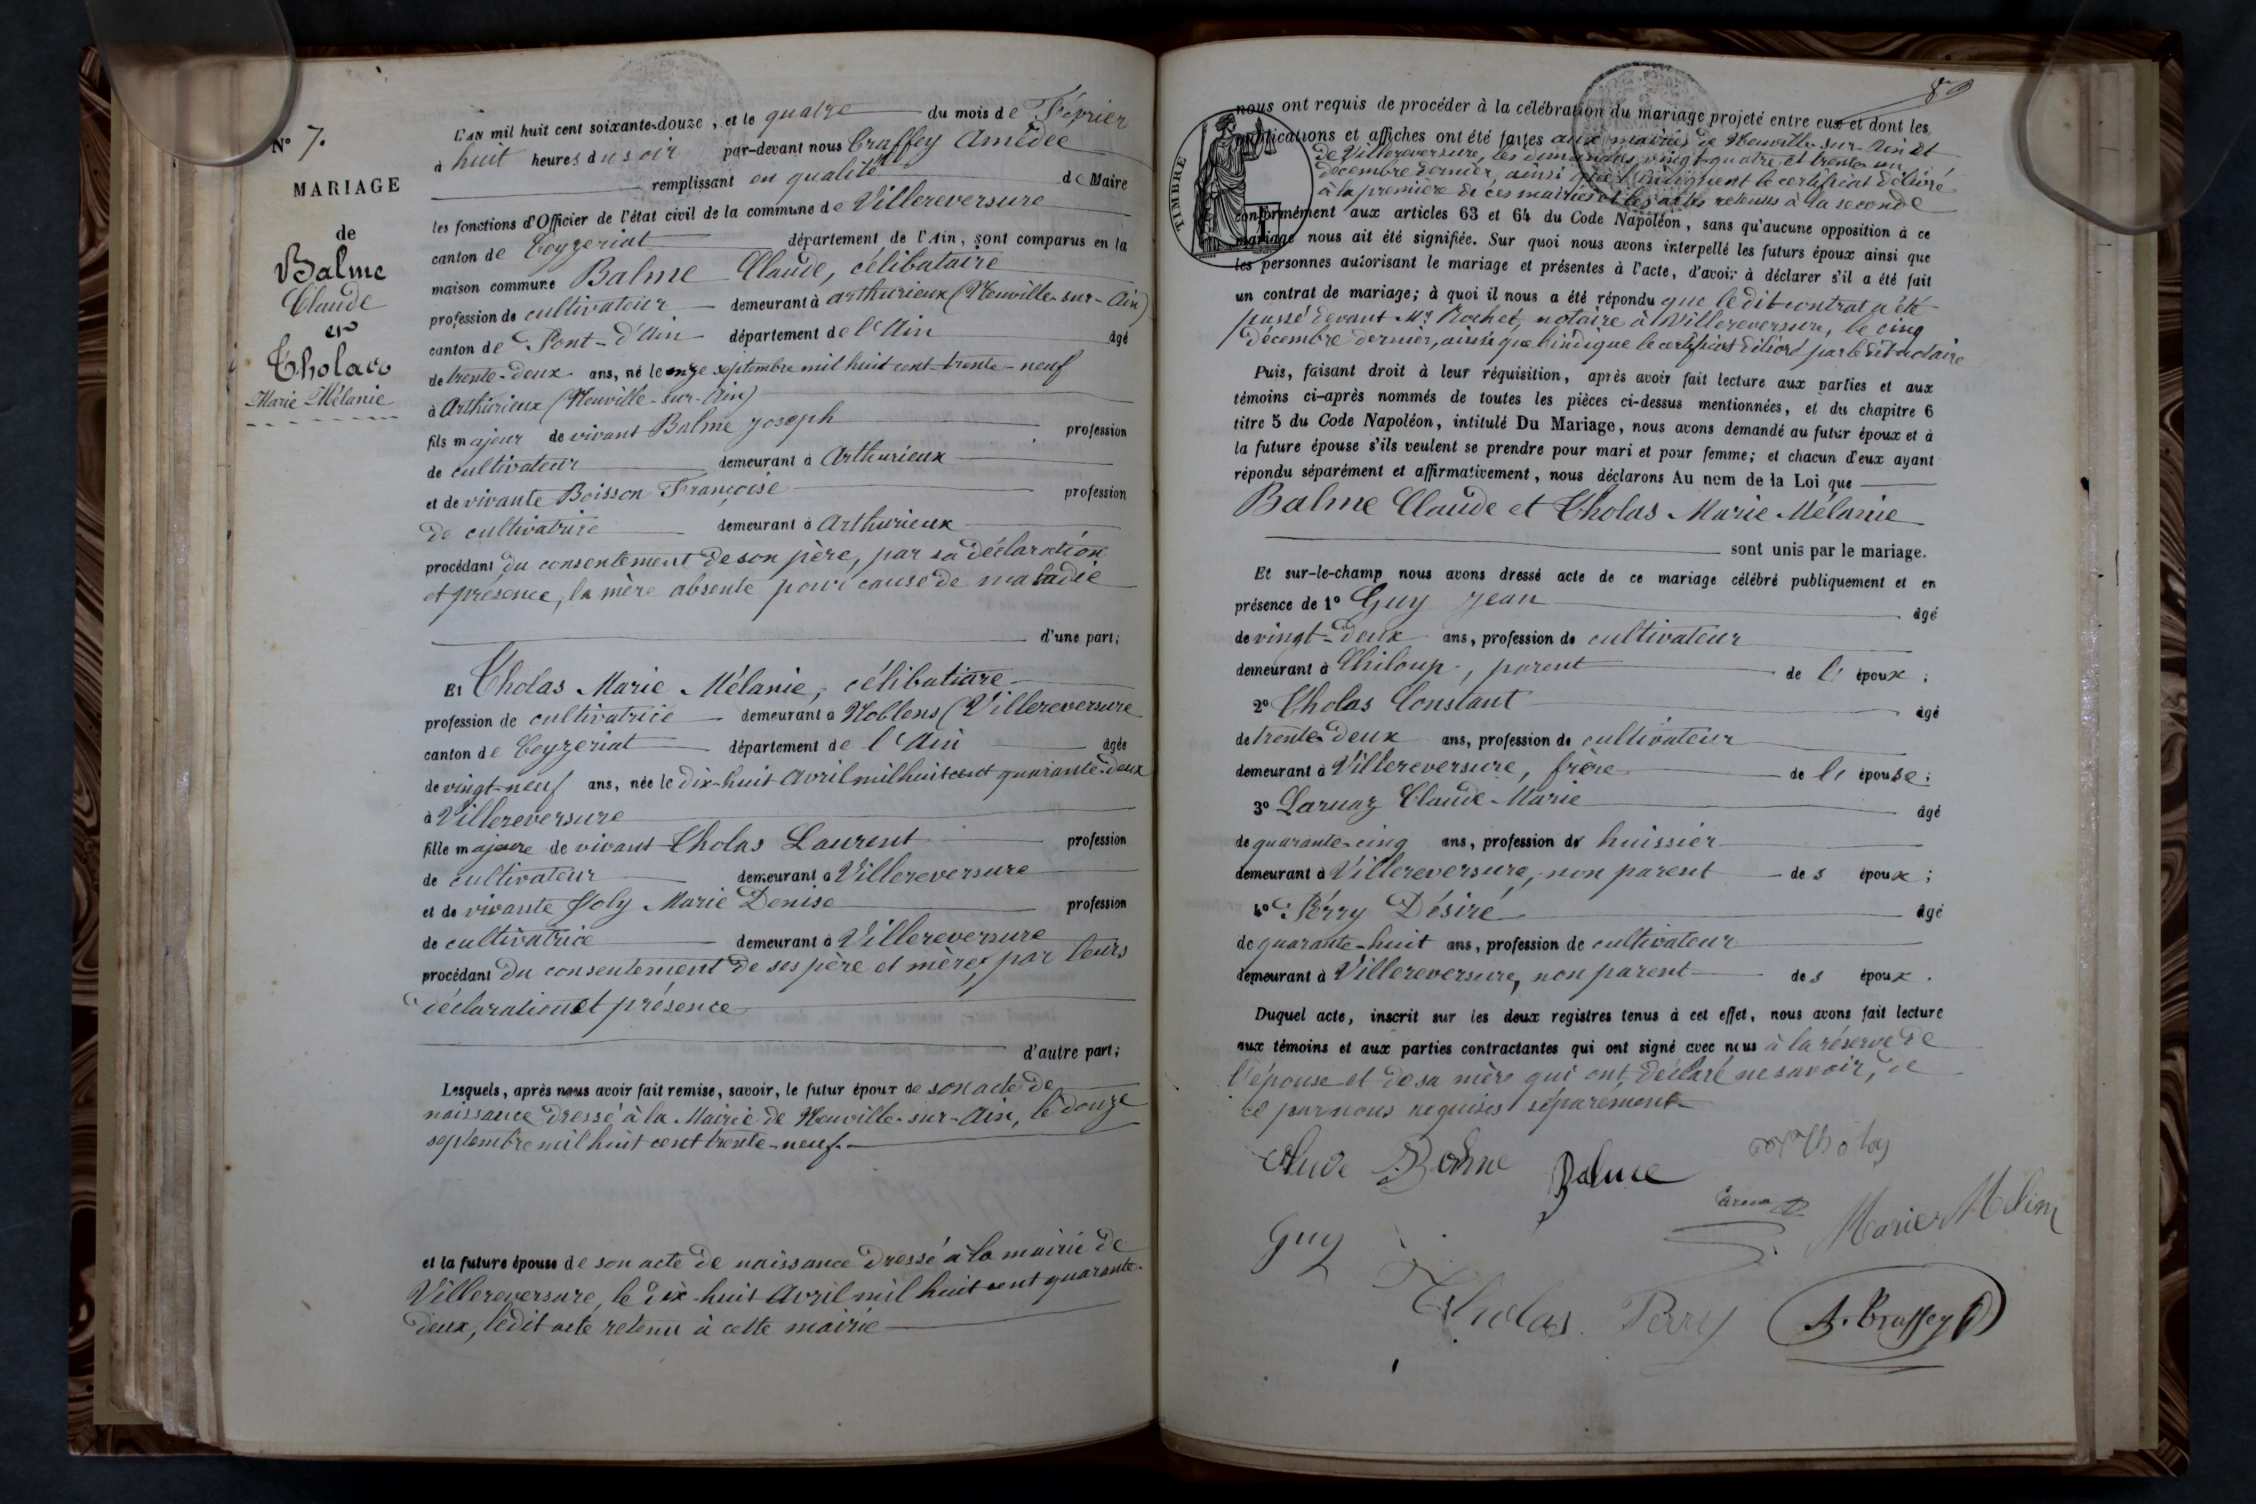 N° 7.
MARIAGE
de
Balme
Claude
et
Tholas
Marie Mélanie
L'AN mil huit cent soixante-douze, et le quatre du mois de Février
à huit heures du soir par-devant nous Amédée
remplissant en qualité de Maire
les fonctions d'Officier de l'état civil de la commune de Villereversure
canton de Ceyzeriat département de l'Ain, sont comparus en la
maison commune Balme Claude, célibataire
profession de cultivateur demeurant à Arthurieux (Neuville-sur-Ain)
canton de Pont-d'Ain département de l'Ain âgé
de trente-deux ans, né le onze septembre mil huit cent trente-neuf
à Arthurieux (Neuville-sur-Ain)
fils majeur de vivant Balme Joseph profession
de cultivateur demeurant à Arthurieux
et de vivante Boisson Françoise profession
de cultivatrice demeurant à Arthurieux
procédant du consentement de son père, par sa déclaration
et présence, la mère absente pour cause de maladie
d'une part;
Et Tholas Marie Mélanie, célibataire
profession de cultivatrice demeurant à Noblens (Villereversure
canton de Ceyzeriat département de l'Ain âgée
de vingt-neuf ans, née le dix-huit Avril mil huit cent quarante-deux
à Villereversure
fille majeure de vivant Tholas Laurent profession
de cultivateur demeurant à Villereversure
et de vivante Joly Marie Denise profession
de cultivatrice demeurant à Villereversure
procédant du consentement de ses père et mère, par leurs
déclaration et présence
d'autre part;
Lesquels, après nous avoir fait remise, savoir, le futur époux de son acte de
naissance dressé à la Mairie de Neuville-sur-Ain, le douze
septembre mil huit cent trente-neuf.
et la future épouse de son acte de naissance dressé à la mairie de
Villereversure, le dix-huit Avril mil huit cent quarante-
deux, ledit acte retenu à cette mairie
TIMBRE
nous ont requis de procéder à la célébration du mariage projeté entre eux et dont les
publications et affiches ont été faites aux mairies de Neuville-sur-Ain et
de Villereversure, les dimanches vingt-quatre et trente-un
décembre dernier, ainsi que l'indiquent le certificat délivré
à la première de ces mairies et les actes retenus à la seconde
conformément aux articles 63 et 64 du Code Napoléon, sans qu'aucune opposition à ce
mariage nous ait été signifiée. Sur quoi nous avons interpellé les futurs époux ainsi que
les personnes autorisant le mariage et présentes à l'acte, d'avoir à déclarer s'il a été fait
un contrat de mariage; à quoi il nous a été répondu que le dit contrat a été
passé devant Mr Rochet, notaire à Villereversure, le cinq
décembre dernier, ainsi que l'indique le certificat délivré par le dit notaire
Puis, faisant droit à leur réquisition, après avoir fait lecture aux parties et aux
témoins ci-après nommés de toutes les pièces ci-dessus mentionnées, et du chapitre 6
titre 5 du Code Napoléon, intitulé Du Mariage, nous avons demandé au futur époux et à
la future épouse s'ils veulent se prendre pour mari et pour femme; et chacun d'eux ayant
répondu séparément et affirmativement, nous déclarons Au nom de la Loi que
Balme Claude et Tholas Marie Mélanie
sont unis par le mariage.
Et sur-le-champ nous avons dressé acte de ce mariage célébré publiquement et en
présence de 1° Guy Jean âgé
de vingt-deux ans, profession de cultivateur
demeurant à Chiloup, parent de l' époux;
2° Tholas Constant âgé
de trente-deux ans, profession de cultivateur
demeurant à Villereversure, frère de l' épouse;
3° Larnaz Claude-Marie âgé
de quarante-cinq ans, profession de huissier
demeurant à Villereversure, non parent des époux;
4° Perry Désiré âgé
de quarante-huit ans, profession de cultivateur
demeurant à Villereversure, non parent des époux.
Duquel acte, inscrit sur les deux registres tenus à cet effet, nous avons fait lecture
aux témoins et aux parties contractantes qui ont signé avec nous à la réserve de
l'épouse et de sa mère qui ont déclaré ne savoir, de
ce par nous requises séparement
Balme Balme Tholas
Guy
Tholas Perry